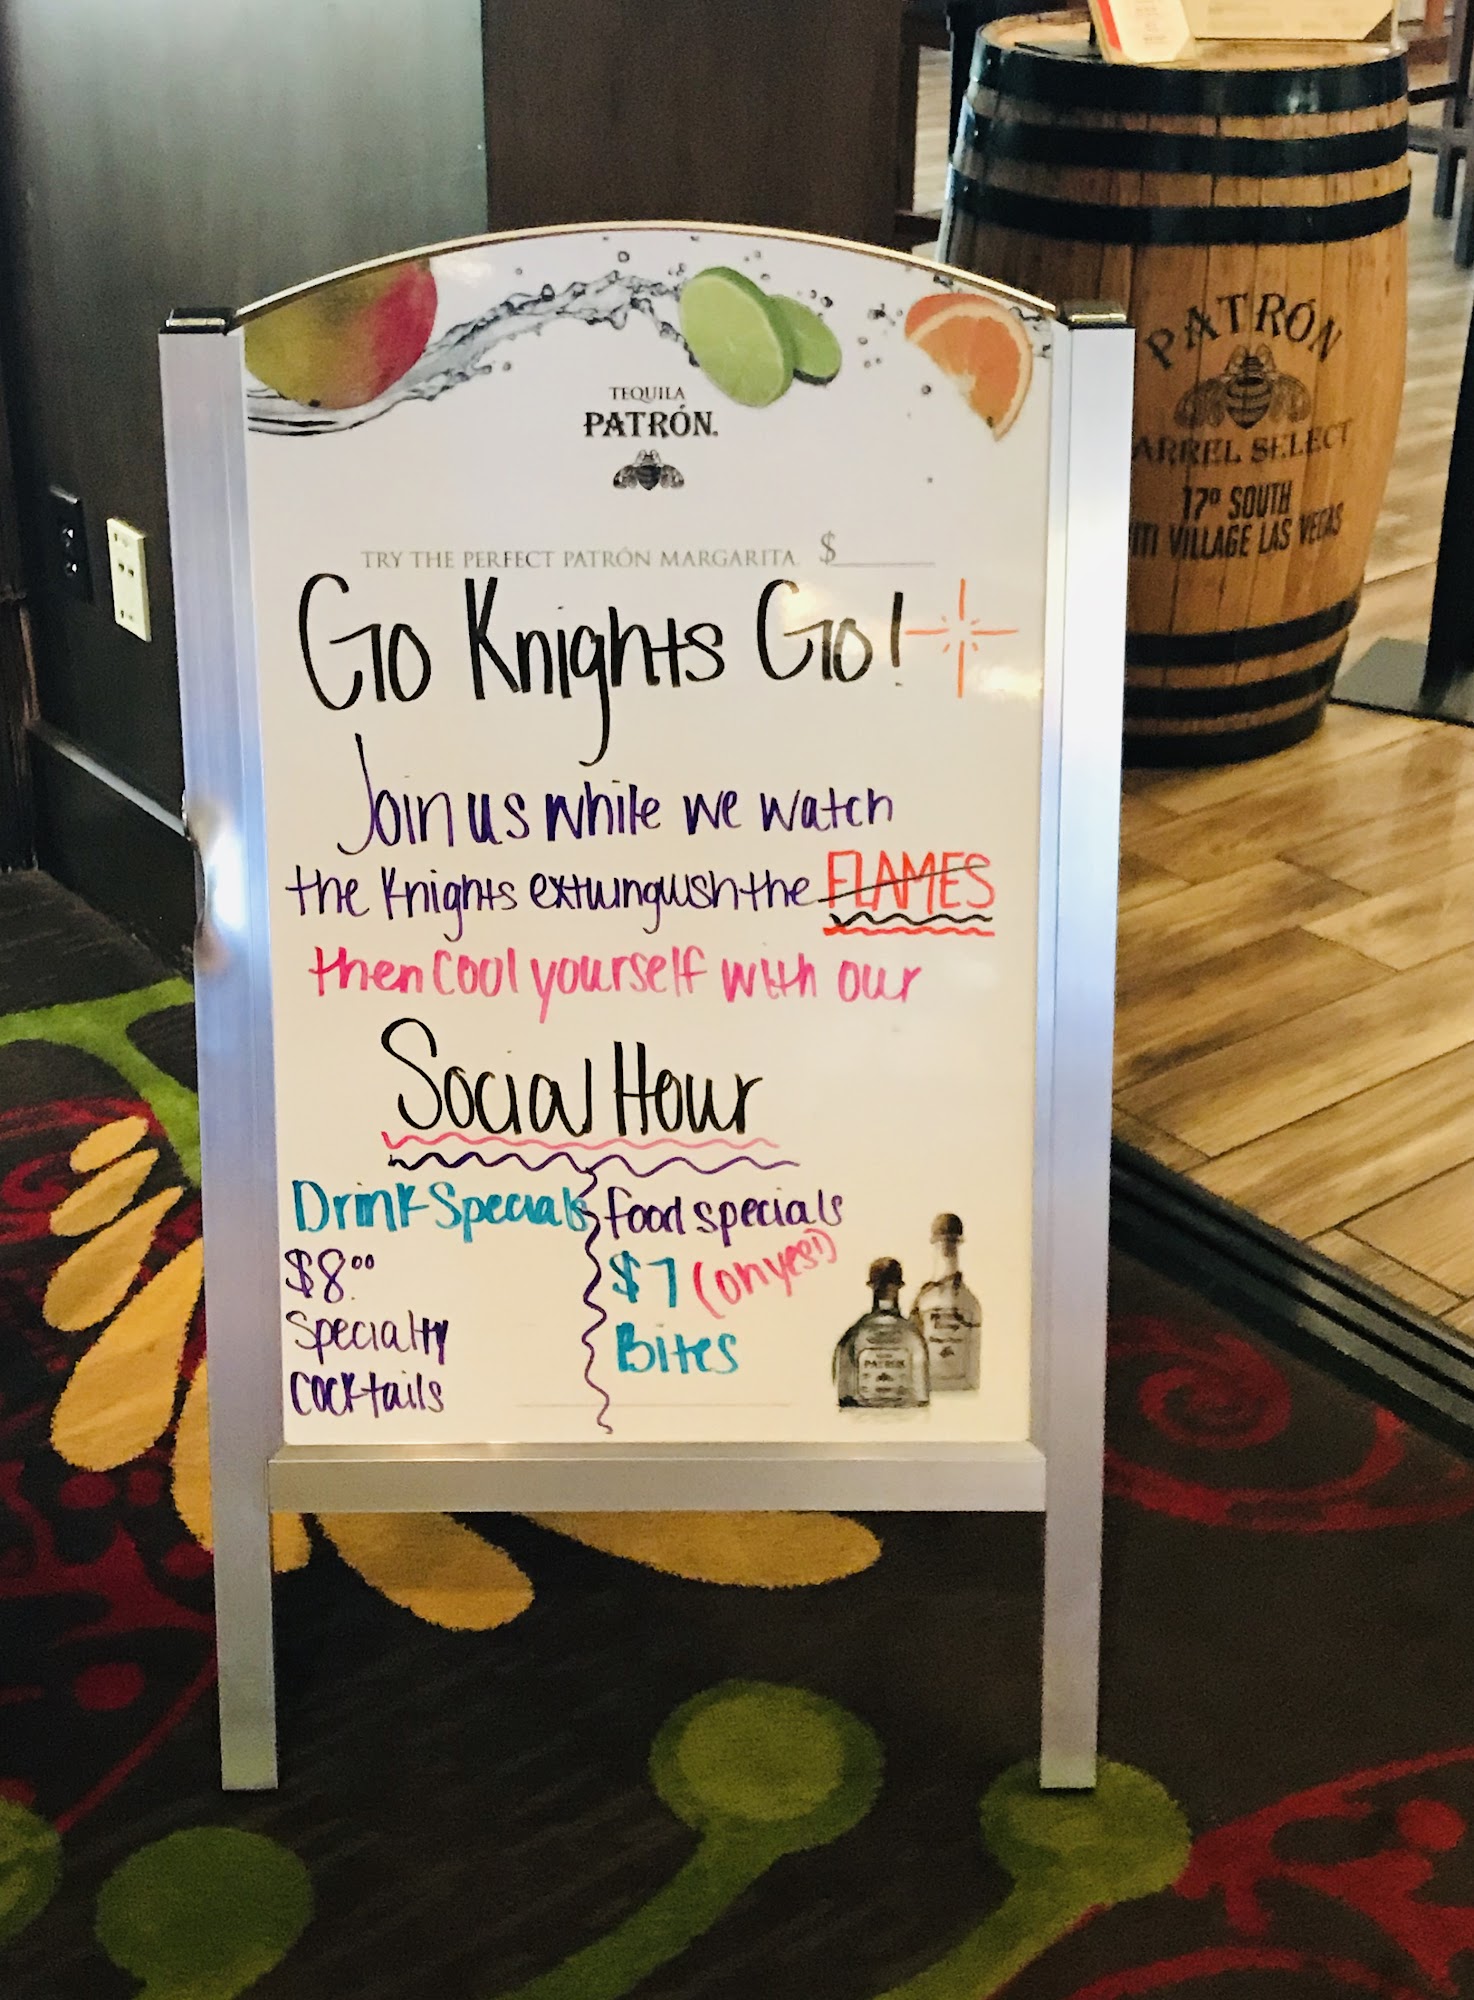 TEQUILA
PATRÓN.
TRY THE PERFECT PATRÓN MARGARITA. $
Go Knights Go!
Join us while we watch
the Knights extuingush the FLAMES
then cool yourself with our
Social Hour
Drink Specials
$8.00
Specialty
Cocktails
food specials
$7 (oh yes!)
Bites
PATRÓN
PATRÓN
ARREL SELECT
17º SOUTH
ITI VILLAGE LAS VEGAS